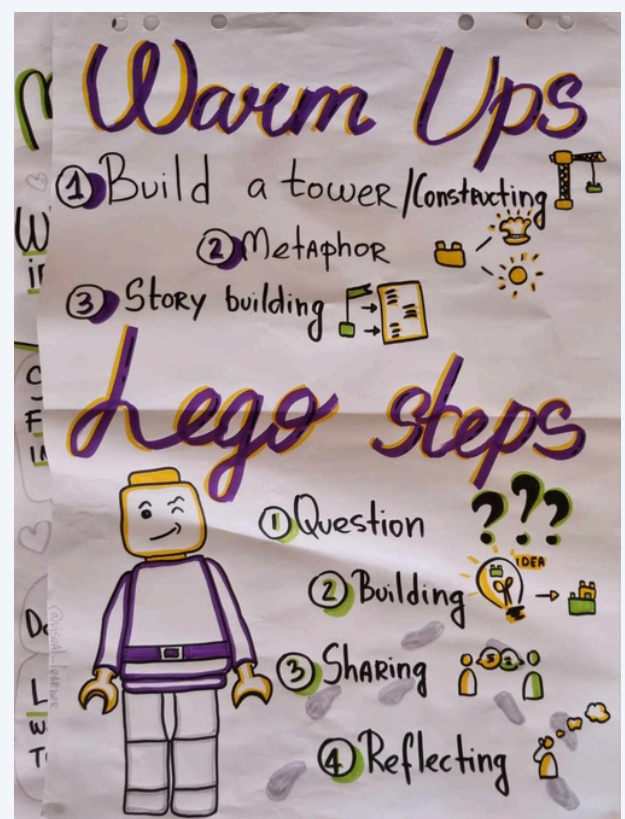 Warm Ups
1 Build a tower/Constructing
2 Metaphor
3 Story building
Lego steps
1 Question ???
2 Building
IDEA
3 Sharing
4 Reflecting